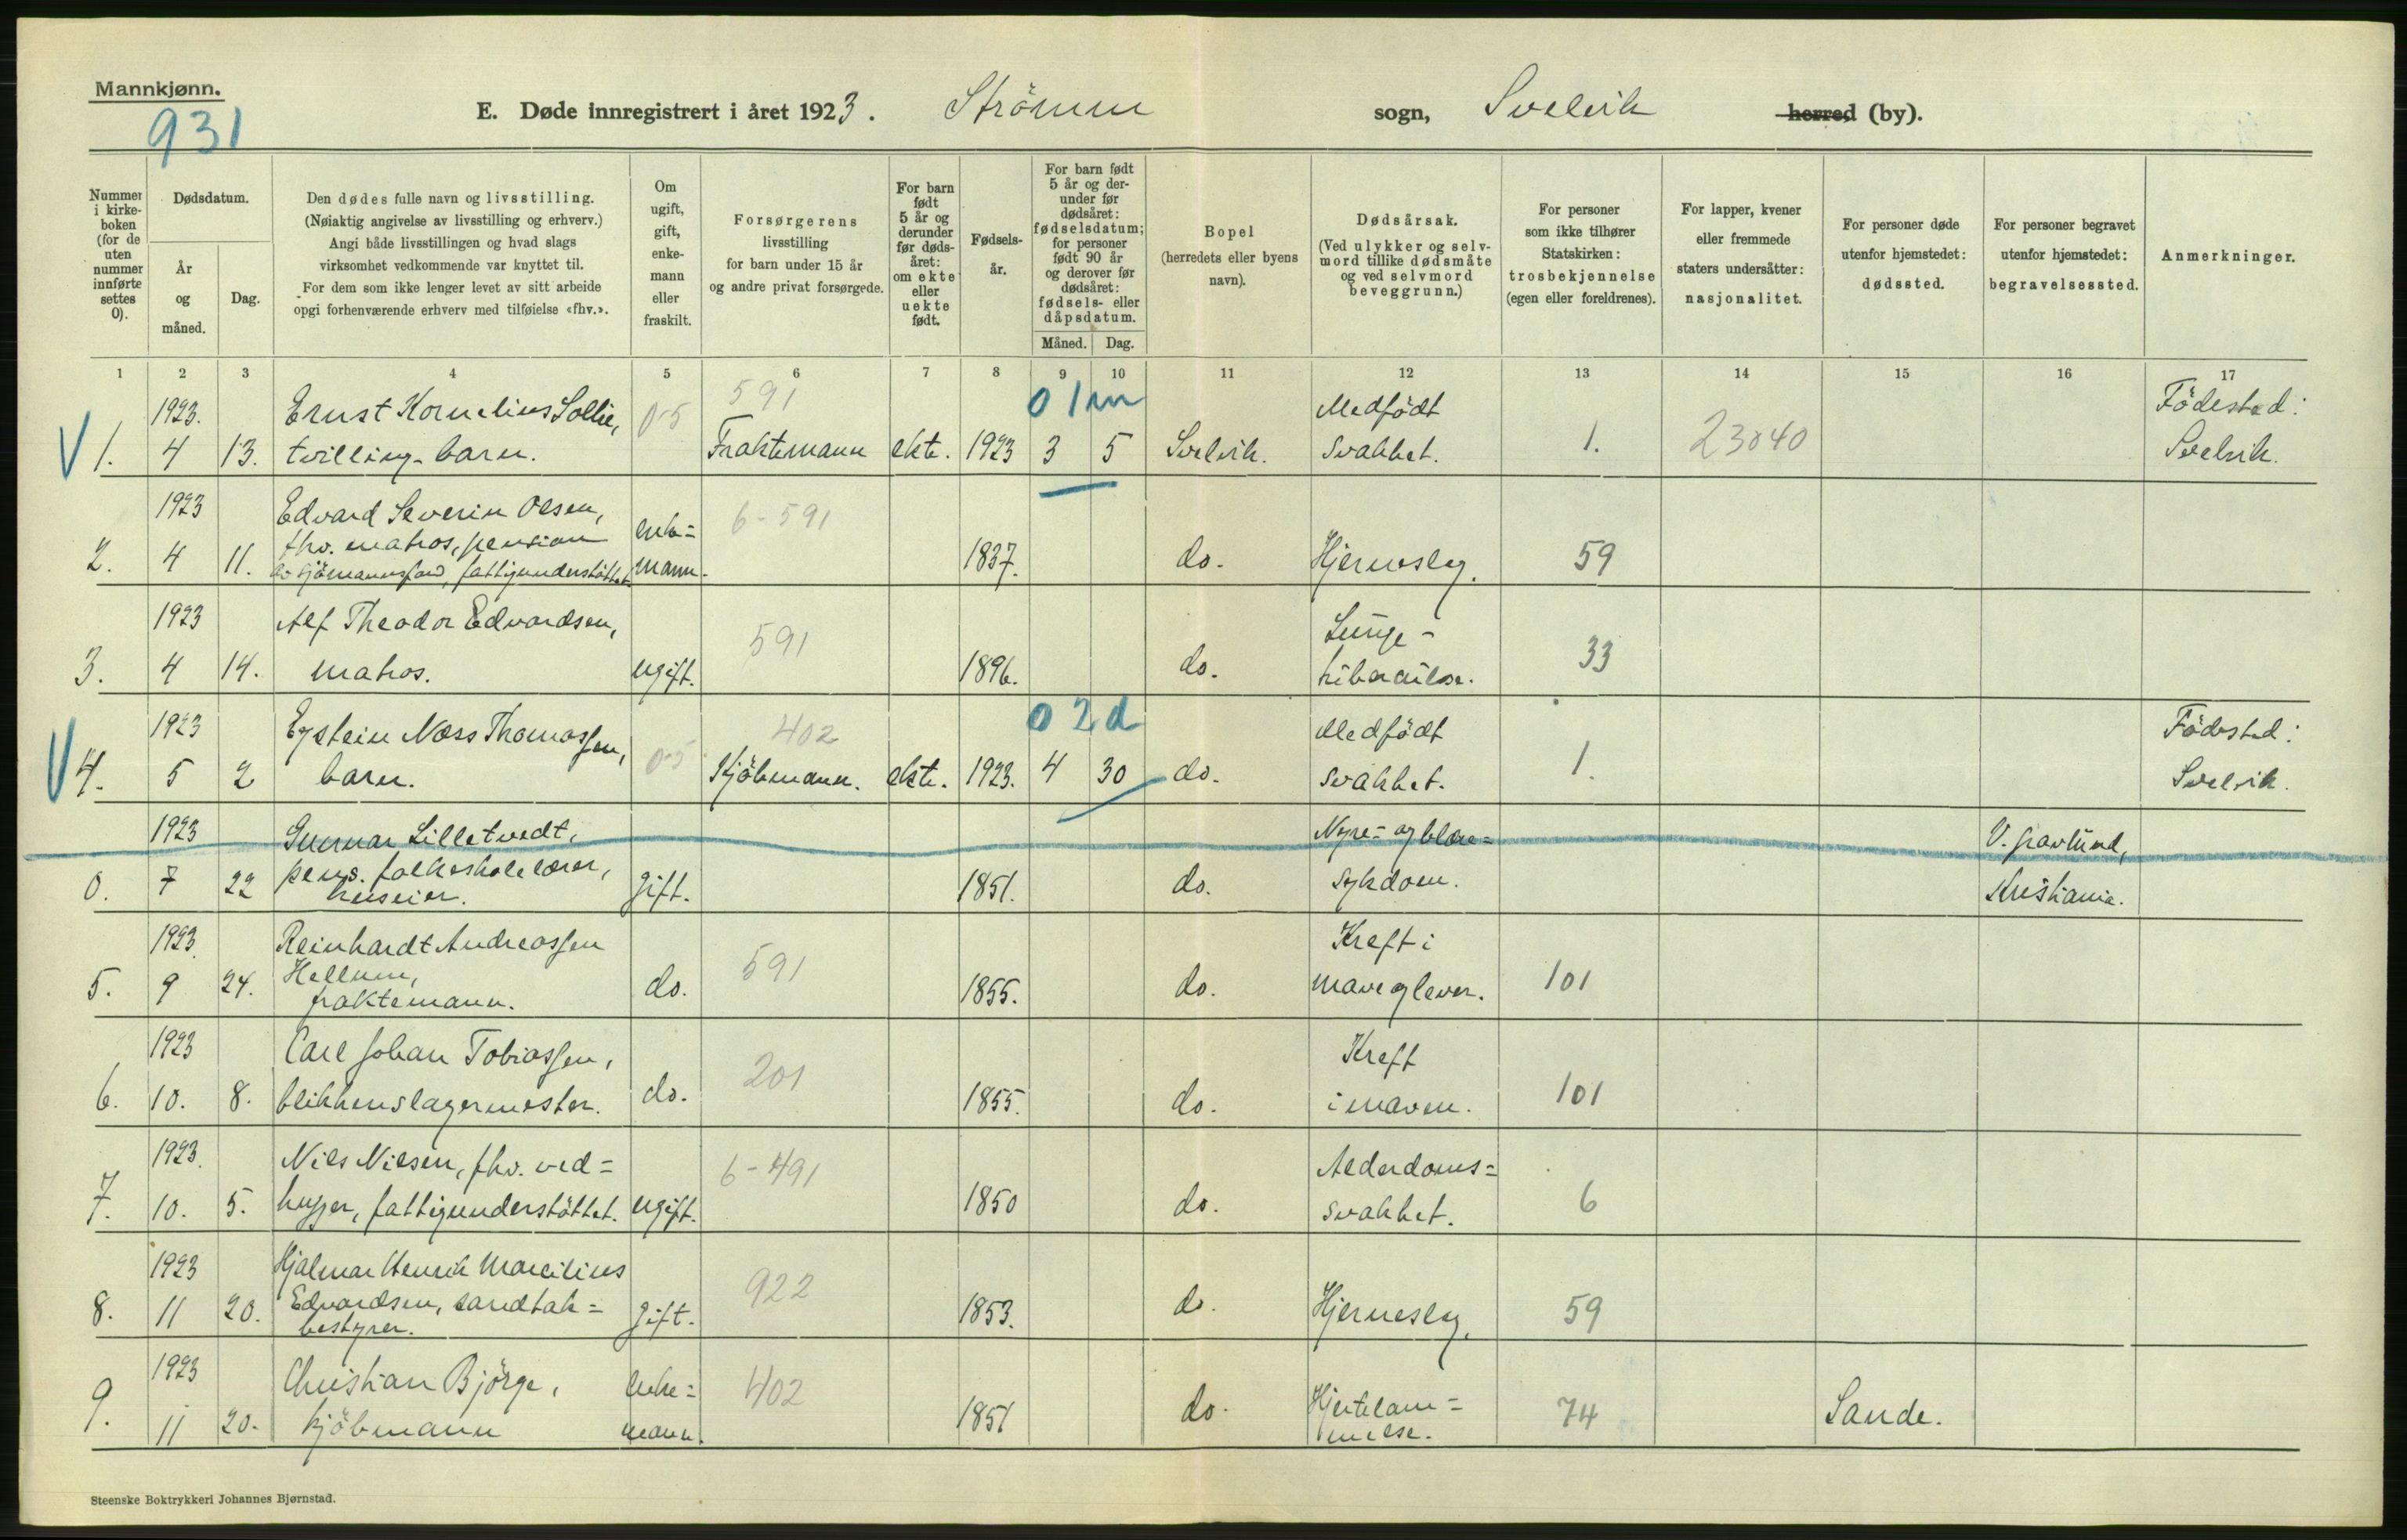 Mannkjønn.
931
E. Døde innregistrert i året 1923. Strömm sogn, Svelvik herred (by).
Nummer i kirke-boken (for de uten nummer innførte settes 0).
Dødsdatum.
År og måned.
Dag.
Den dødes fulle navn og livsstilling.
(Nøiaktig angivelse av livsstilling og erhverv.)
Angi både livsstillingen og hvad slags
virksomhet vedkommende var knyttet til.
For dem som ikke lenger levet av sitt arbeide
opgi forhenværende erhverv med tilføielse «fhv.».
Om ugift, gift, enke-mann eller fraskilt.
Forsørgerens
livsstilling
for barn under 15 år
og andre privat forsørgede.
For barn født 5 år og derunder før døds-året: om ekte eller uekte født.
Fødsels-år.
For barn født 5 år og der-under før dødsåret: fødselsdatum; for personer født 90 år og derover før dødsåret: fødsels- eller dåpsdatum.
Måned. Dag.
Bopel
(herredets eller byens
navn).
Dødsårsak.
(Ved ulykker og selv-
mord tillike dødsmåte
og ved selvmord
beveggrunn.)
For personer
som ikke tilhører
Statskirken:
trosbekjennelse
(egen eller foreldrenes).
For lapper, kvener
eller fremmede
staters undersåtter:
nasjonalitet.
For personer døde
utenfor hjemstedet:
dødssted.
For personer begravet
utenfor hjemstedet:
begravelsessted.
Anmerkninger.
1 2 3 4 5 6 7 8 9 10 11 12 13 14 15 16 17
1923. Ernst Kornelius Sollie, 0-5 591 0 1 m Medfödt Födested:
V 1. 4 13. tvilling-barn. Fraktemann ekte. 1923 3 5 Svelvik. Svakhet. 1. 23040 Svelvik.
1923 Edvard Severin Olsen, enke= 6-591
fhv. matros, pension
2. 4 11. av sjömannsfond, fattigunderstöttet mann. 1837. do. Hjerneslag. 59
1923 Alf Theodor Edvardsen, 591 Lunge-
3. 4 14. matros. ugift. 1896. do. tuberculose. 33
1923 Eystein Næss Thomassen, 0-5 402 0 2 d Medfödt Födested:
V 4. 5 2 barn. Kjöbmann. ekte. 1923. 4 30 do. svakhet. 1. Svelvik.
1923 Gunnar Lilletvedt, Nyre= og blære= V. gravlund,
0. 7 22 pens. folkeskolelærer, gift. 1851. do. sykdom. Kristiania.
huseier.
1923. Reinhardt Andreassen 591 Kreft i
5. 9 24. Hellum, do. 1855. do. mave og lever. 101
fraktemann.
1923 Carl Johan Tobiassen, 201 Kreft
6. 10. 8. blikkenslagermester. do. 1855. do. i maven. 101
1923. Nils Nilsen, fhv. ved= 6-491 Alderdoms=
7. 10. 5. hugger, fattigunderstöttet. ugift. 1850 do. svakhet. 6
1923 Hjalmar Henrik Marcilius 922
8. 11 20. Edvardsen, sandtak= gift. 1853. do. Hjerneslag. 59
bestyrer.
1923 Christian Björge, enke= 402 Hjertelam=
9. 11 20. kjöbmann mann. 1851 do. melse. 74 Sande.
Steenske Boktrykkeri Johannes Bjørnstad.